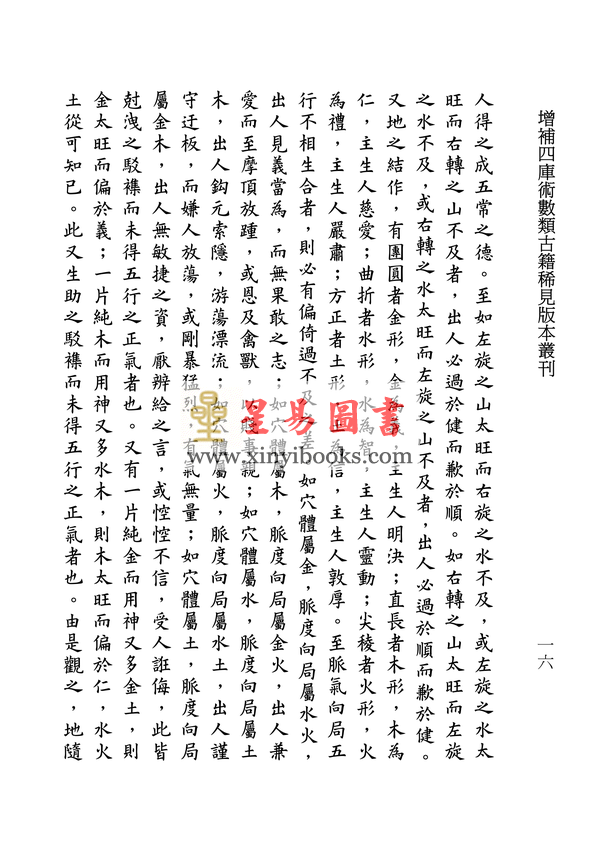 增補四庫術數類古籍稀見版本叢刊
一六
人得之成五常之德。至如左旋之山太旺而右旋之水不及，或左旋之水太
旺而右轉之山不及者，出人必過於健而歉於順。如右轉之山太旺而左旋
之水不及，或右轉之水太旺而左旋之山不及者，出人必過於順而歉於健。
又地之結作，有團圓者金形，金為義，主生人明決；直長者木形，木為
仁，主生人慈愛；曲折者水形，水為智，主生人靈動；尖稜者火形，火
為禮，主生人嚴肅；方正者土形，土為信，主生人敦厚。至脈氣向局五
行不相生合者，則必有偏倚過不及之差。如穴體屬金，脈度向局屬水火，
出人見義當為，而無果敢之志；如穴體屬木，脈度向局屬金火，出人兼
愛而至摩頂放踵，或恩及禽獸，以事親；如穴體屬水，脈度向局屬土
木，出人鈎元索隱，游蕩漂流；如穴體屬火，脈度向局屬水土，出人謹
守迂板，而嫌人放蕩，或剛暴猛烈，有氣無量；如穴體屬土，脈度向局
屬金木，出人無敏捷之資，厭辯給之言，或悾悾不信，受人誑侮，此皆
尅洩之駁襍而未得五行之正氣者也。又有一片純金而用神又多金土，則
金太旺而偏於義；一片純木而用神又多水木，則木太旺而偏於仁，水火
土從可知已。此又生助之駁襍而未得五行之正氣者也。由是觀之，地隨
星易圖書
www.xinyibooks.com